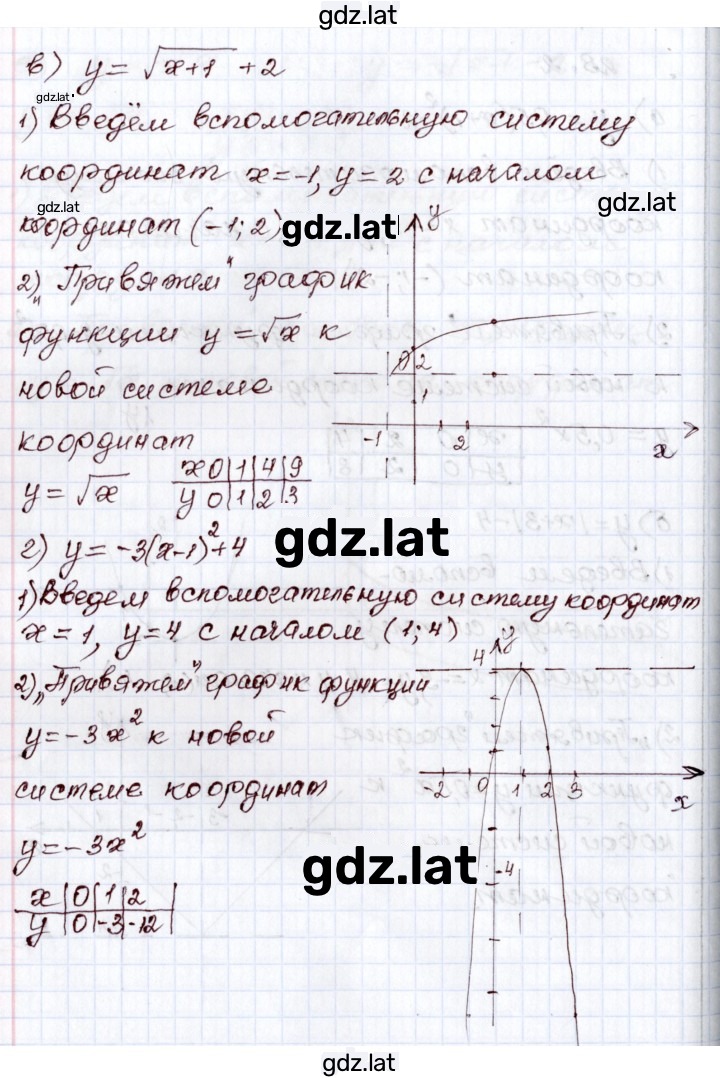 gdz.lat
в) y = √x+1 + 2
gdz.lat
1) Введём вспомогательную систему
координат x=-1, y=2 с началом
gdz.lat
gdz.lat
координат (-1; 2)
gdz.lat
y
2) „Привяжем" график
функции y = √x к
0 2
новой системе
1
координат
-1 2 x
y = √x
x 0 1 4 9
y 0 1 2 3
gdz.lat
г) y = -3(x-1)²+4
1) Введем вспомогательную систему координат
x = 1, y=4 с началом (1; 4)
4 y
2) „Привяжем" график функции
y = -3x² к новой
системе координат
-2 0 1 2 3 x
y = -3x²
gdz.lat
-4
x 0 1 2
y 0 -3 -12
gdz.lat